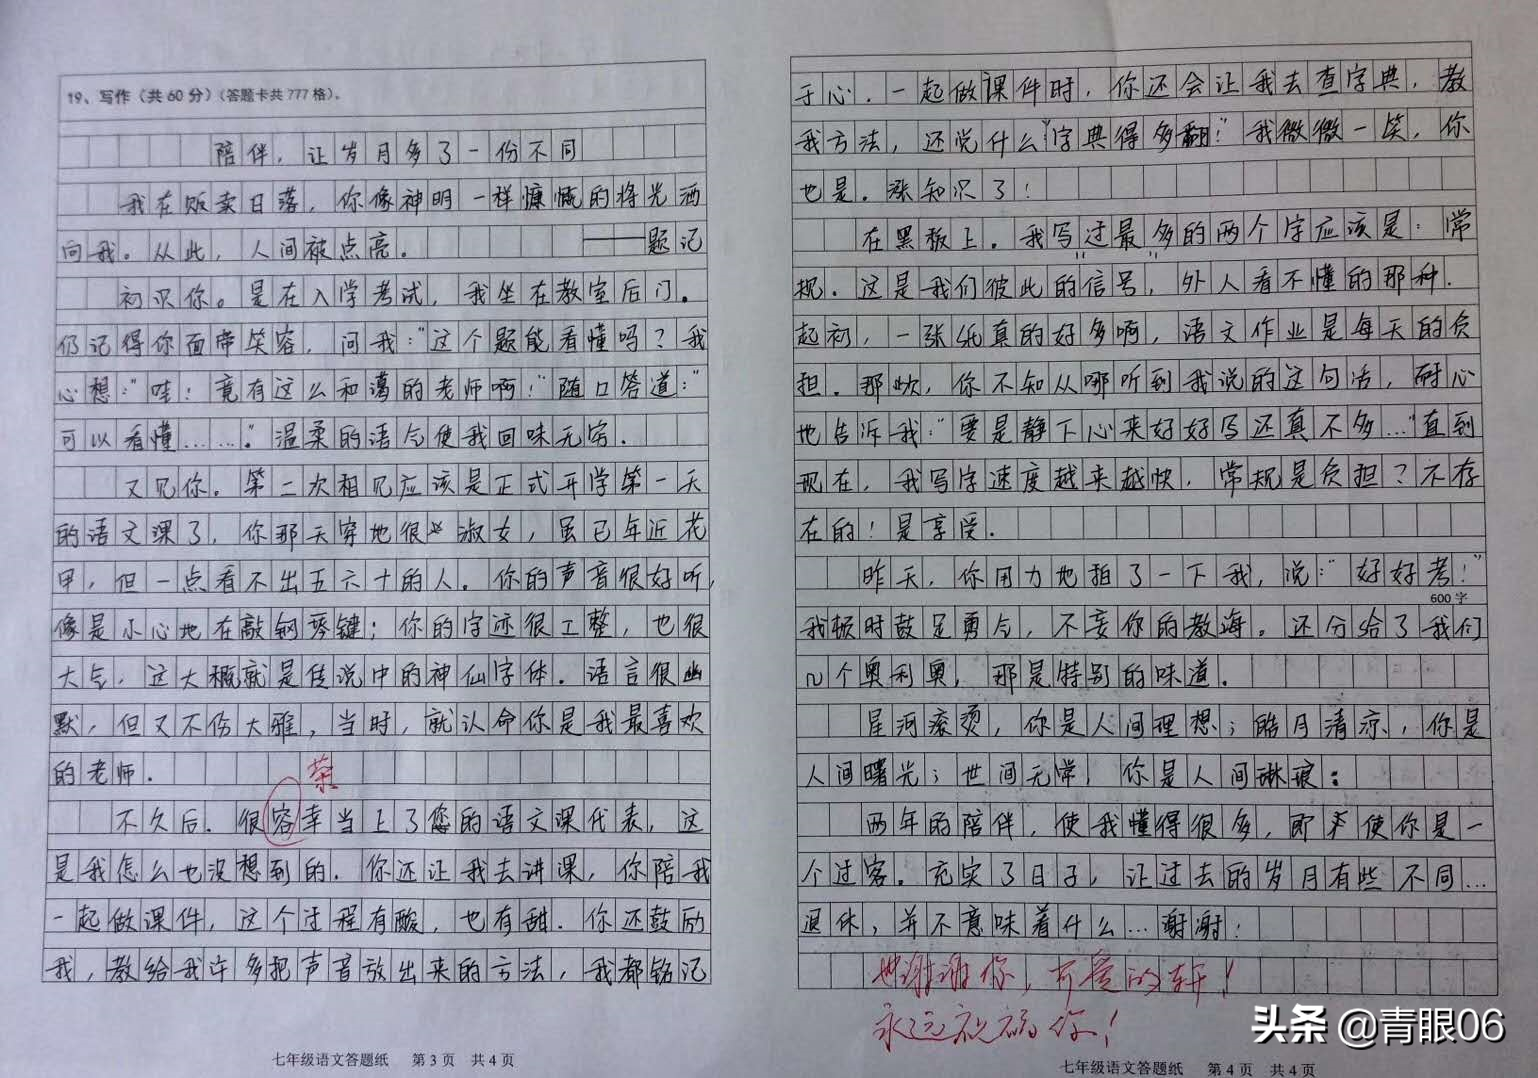 19、写作（共60分）（答题卡共777格）。
陪伴，让岁月多了一份不同
我在贩卖日落，你像神明一样慷慨的将光洒
向我。从此，人间被点亮。 ——题记
初识你。是在入学考试，我坐在教室后门。
仍记得你面带笑容，问我：“这个题能看懂吗？我
心想：“哇！竟有这么和蔼的老师啊！”随口答道：“
可以看懂……。”温柔的语气使我回味无穷．
又见你。第二次相见应该是正式开学第一天
的语文课了，你那天穿地很 淑女，虽已年近花
甲，但一点看不出五六十的人。你的声音很好听，
像是小心地在敲钢琴键；你的字迹很工整，也很
大气，这大概就是传说中的神仙字体．语言很幽
默，但又不伤大雅，当时，就认命你是我最喜欢
的老师．
荣
不久后．很容幸当上了您的语文课代表，这
是我怎么也没想到的．你还让我去讲课，你陪我
一起做课件，这个过程有酸，也有甜．你还鼓励
我，教给我许多把声音放出来的方法，我都铭记
七年级语文答题纸 第3页 共4页
于心．一起做课件时，你还会让我去查字典，教
我方法，还说什么“字典得多翻！”我微微一笑，你
也是．涨知识了！
在黑板上。我写过最多的两个字应该是：“常
规”．这是我们彼此的信号，外人看不懂的那种．
起初，一张纸真的好多啊，语文作业是每天的负
担．那次，你不知从哪听到我说的这句话，耐心
地告诉我：“要是静下心来好好写还真不多…”直到
现在，我写字速度越来越快，常规是负担？不存
在的！是享受．
昨天，你用力地拍了一下我，说：“好好考！”
600字
我顿时鼓足勇气，不妄你的教海。还分给了我们
几个奥利奥，那是特别的味道．
星河滚烫，你是人间理想；皓月清凉，你是
人间曙光；世间无常，你是人间琳琅；
两年的陪伴，使我懂得很多，即 使你是一
个过客。充实了日子，让过去的岁月有些不同…
退休，并不意味着什么…谢谢！
也谢谢你，可爱的轩！
永远祝福你！
七年级语文答题纸 第4页 共4页
头条 @青眼06